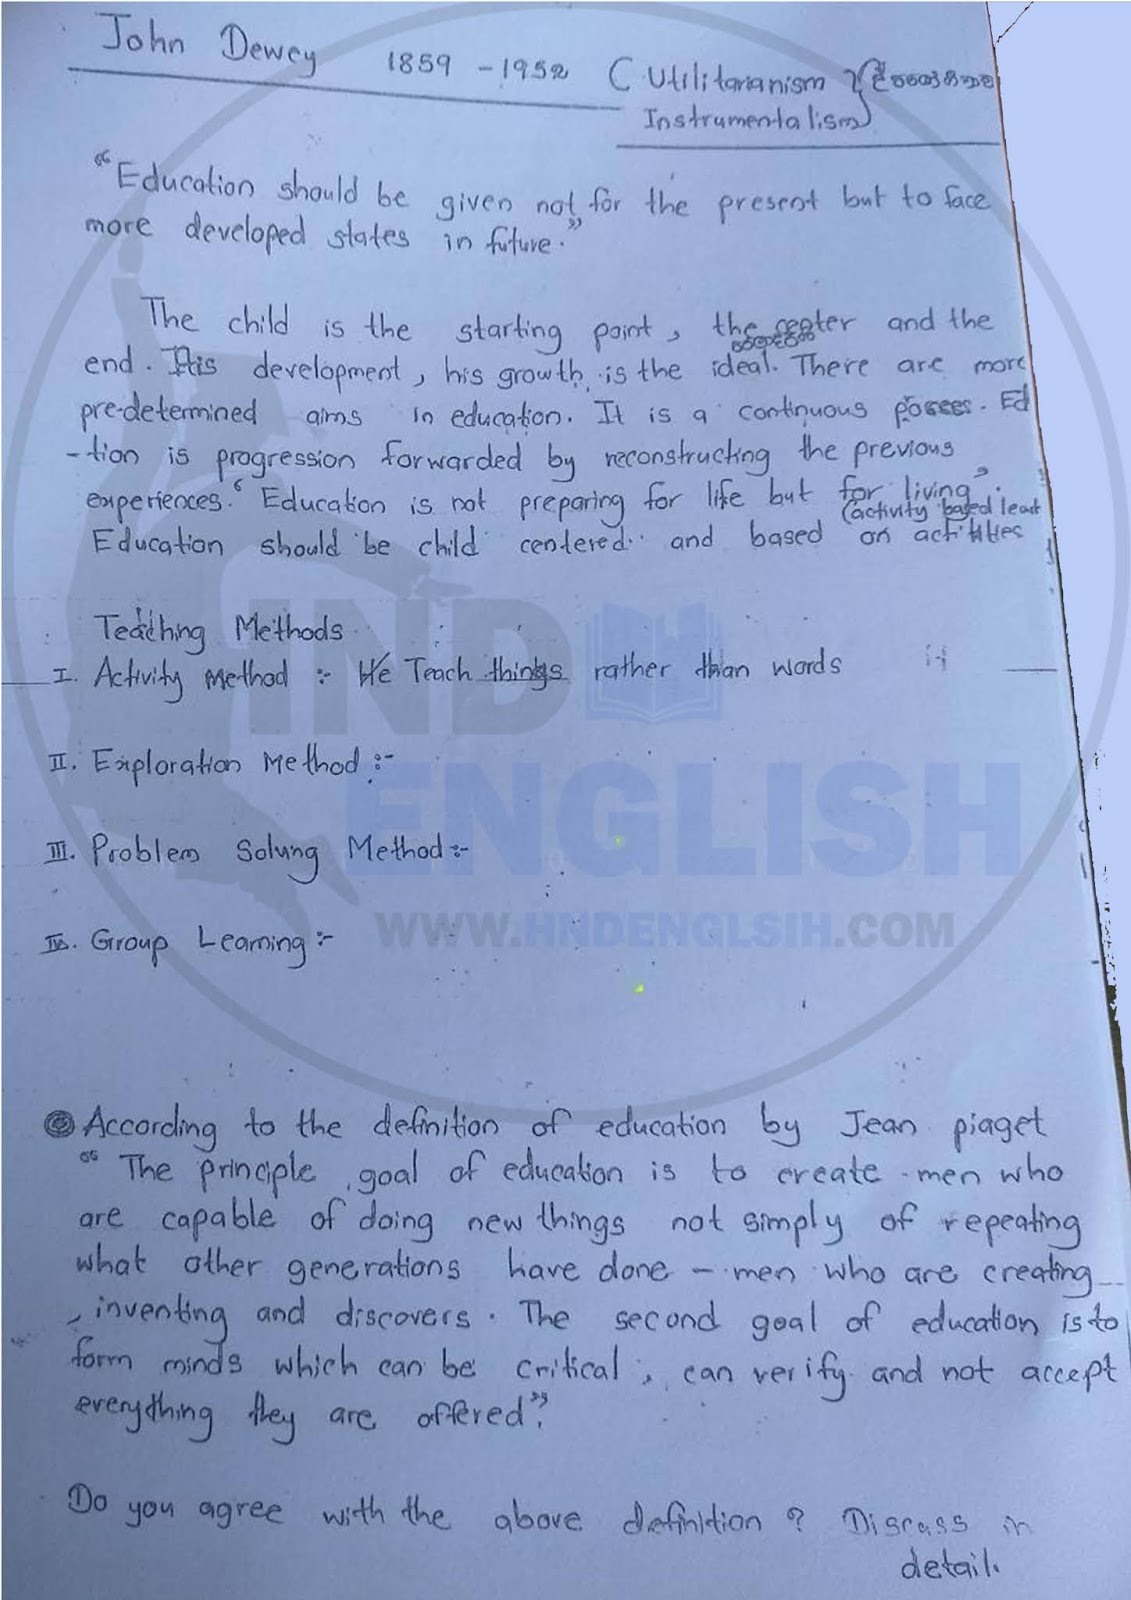 John Dewey 1859 - 1952 ( Utilitarianism
Instrumentalism
"Education should be given not for the present but to face
more developed states in future."
The child is the starting point, the center and the
end. His development, his growth is the ideal. There are more
pre-determined aims in education. It is a continuous process. Ed
-tion is progression forwarded by reconstructing the previous
experiences. "Education is not preparing for life but for living".
(activity based learn
Education should be child centered and based on activities
Teaching Methods
I. Activity Method :- He Teach things rather than words
II. Exploration Method :-
III. Problem Solving Method :-
IV. Group Learning :-
HND
ENGLISH
WWW.HNDENGLSIH.COM
According to the definition of education by Jean piaget
"The principle goal of education is to create men who
are capable of doing new things not simply of repeating
what other generations have done - men who are creating
, inventing and discovers. The second goal of education is to
form minds which can be critical, can verify and not accept
everything they are offered".
Do you agree with the above definition? Discuss in
detail.